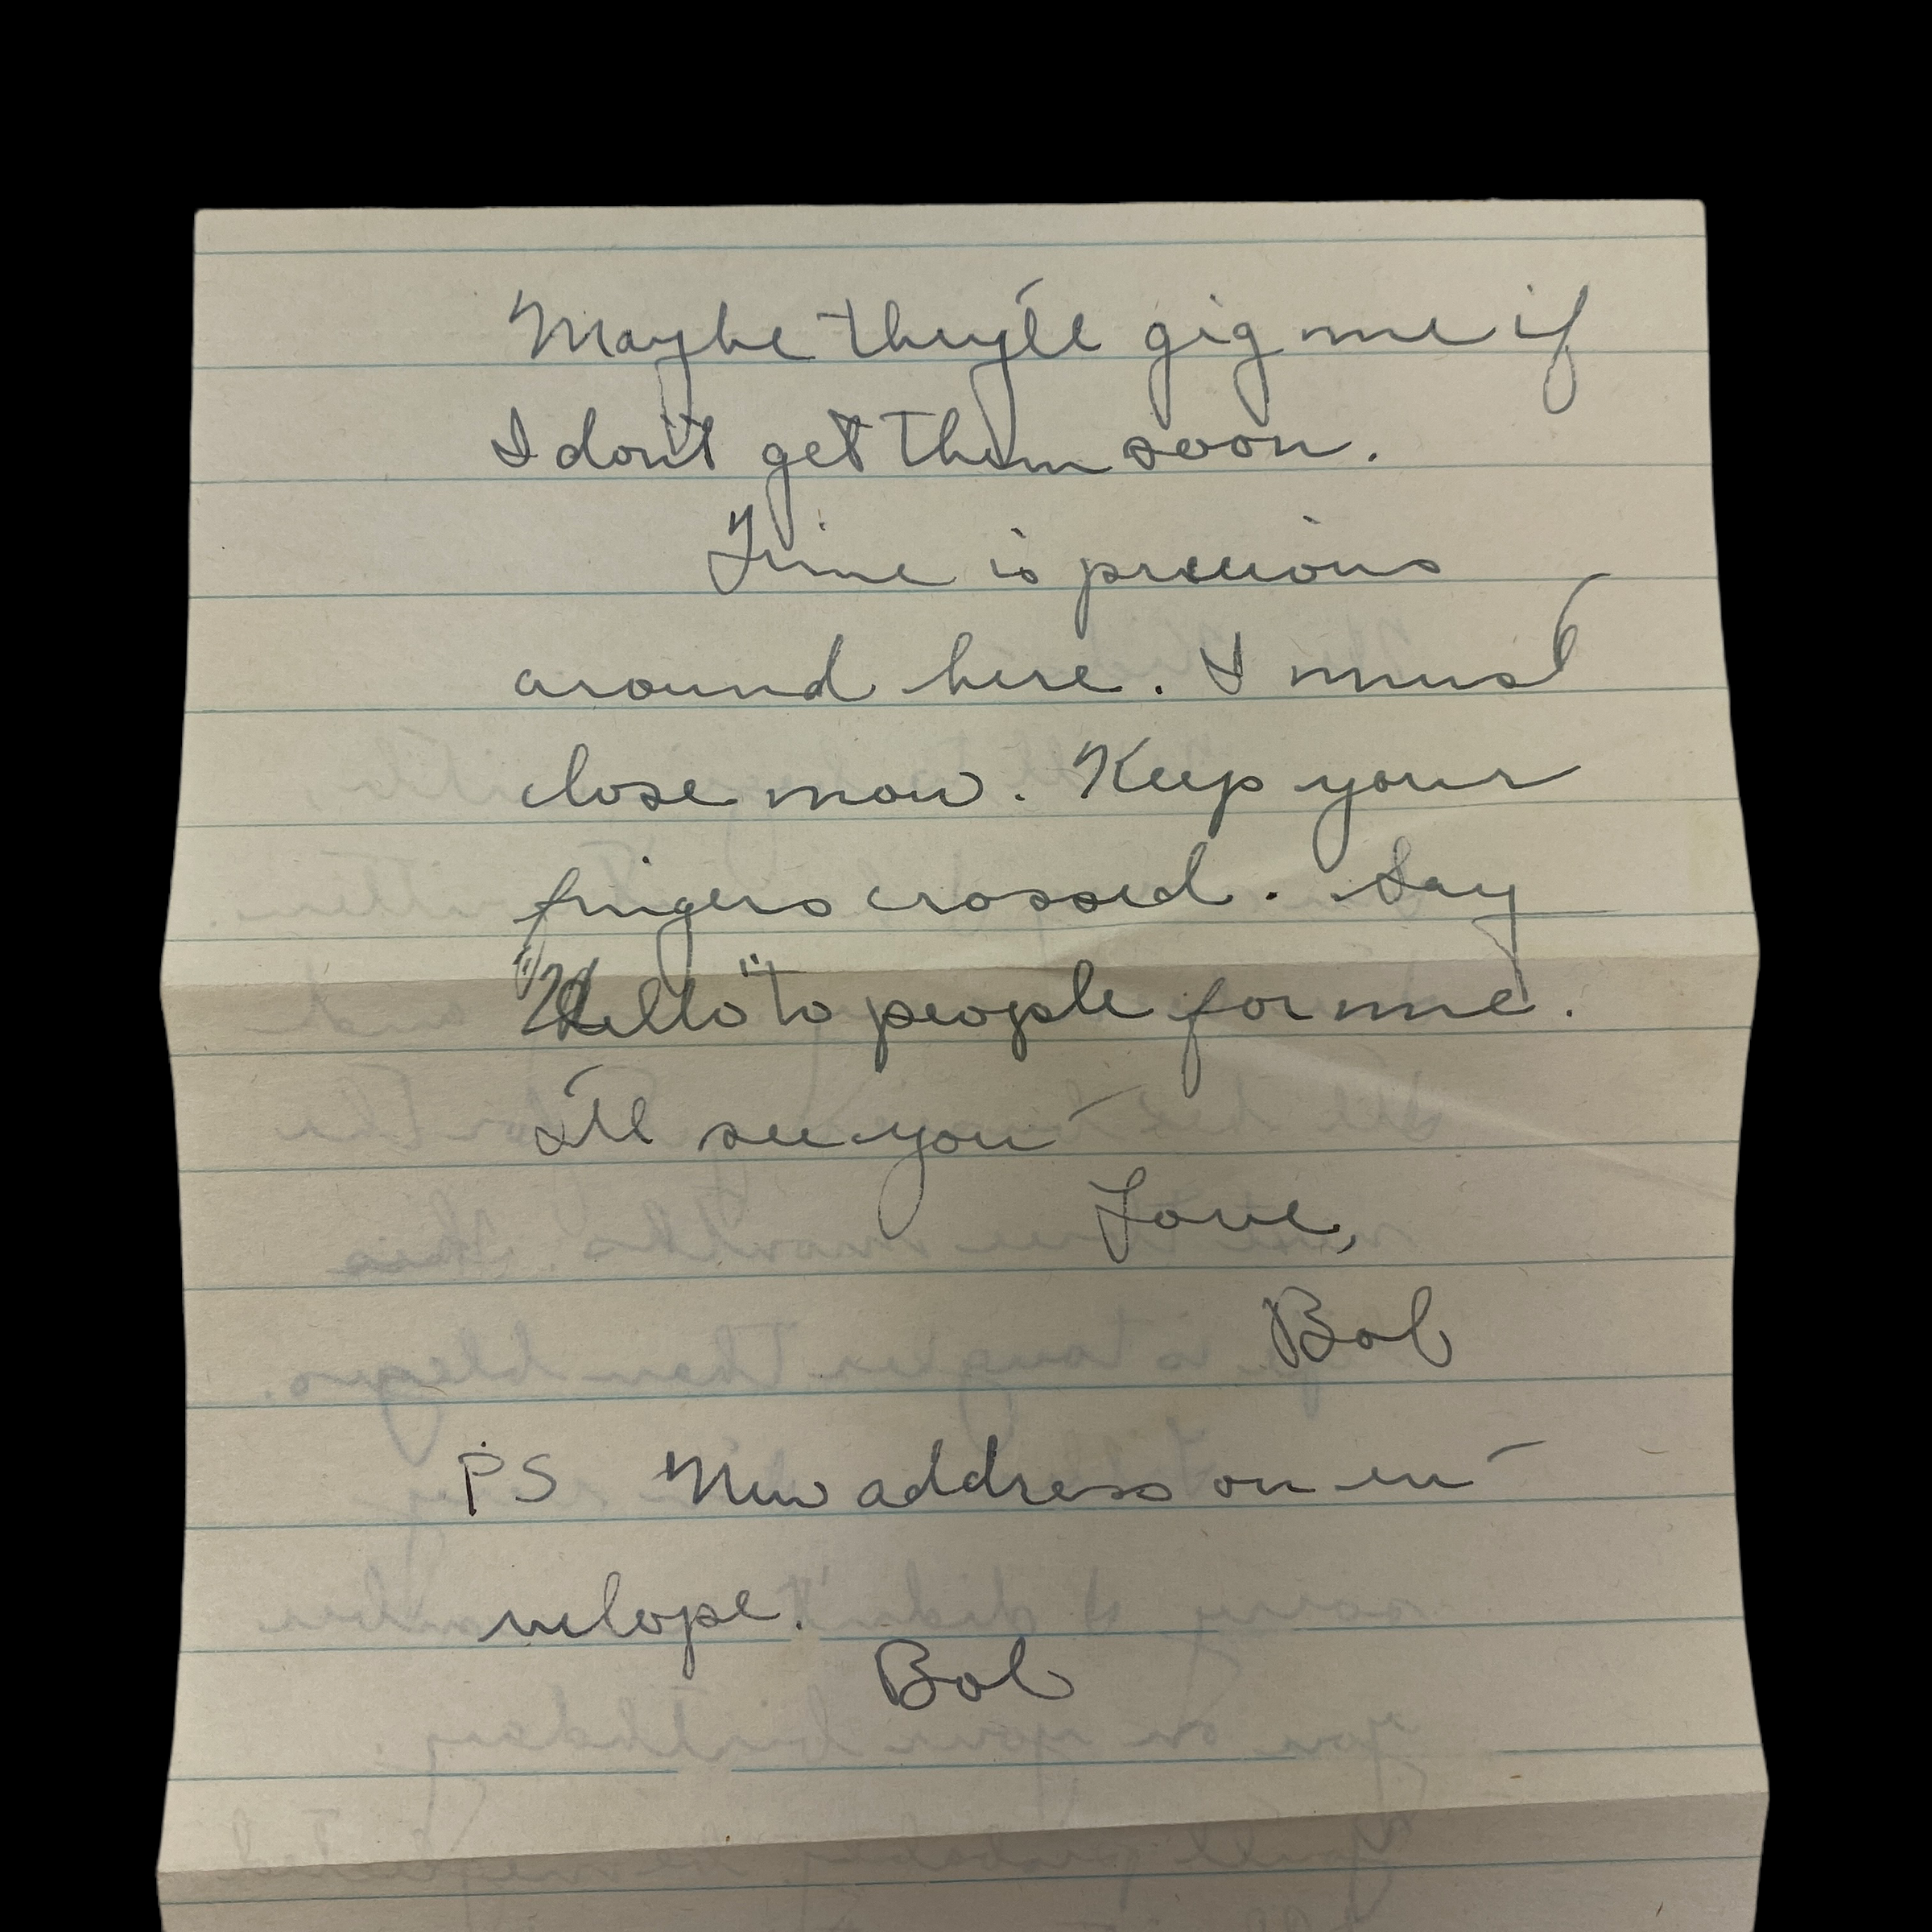 Maybe they'll gig me if
I don't get them soon.
Time is precious
around here. I must
close now. Keep your
fingers crossed. Say
"Hello" to people for me.
I'll see you –
Love,
Bob
PS New address on en-
velope.
Bob